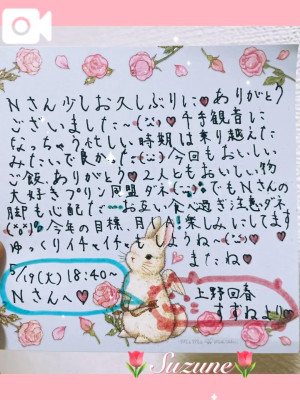 Nさん少しお久しぶりに♥ありがとう
ございました〜(¨)♥千手観音に
なっちゃう忙しい時期は乗り越えた
みたいで良かった(¨)今回もおいしい
ご飯ありがとう♥2人ともおいしい物
大好きプリン同盟ダネ(¨)でもNさんの
脚も心配だ…お互い食べ過ぎ注意ダネ
(××)今年の目標、月1楽しみにしてます
ゆっくりイチャイチャしようね〜(¨)♥
またね♥
5/19(火)18:40〜
Nさんへ♥
上野回春
すずねより♥
Suzune